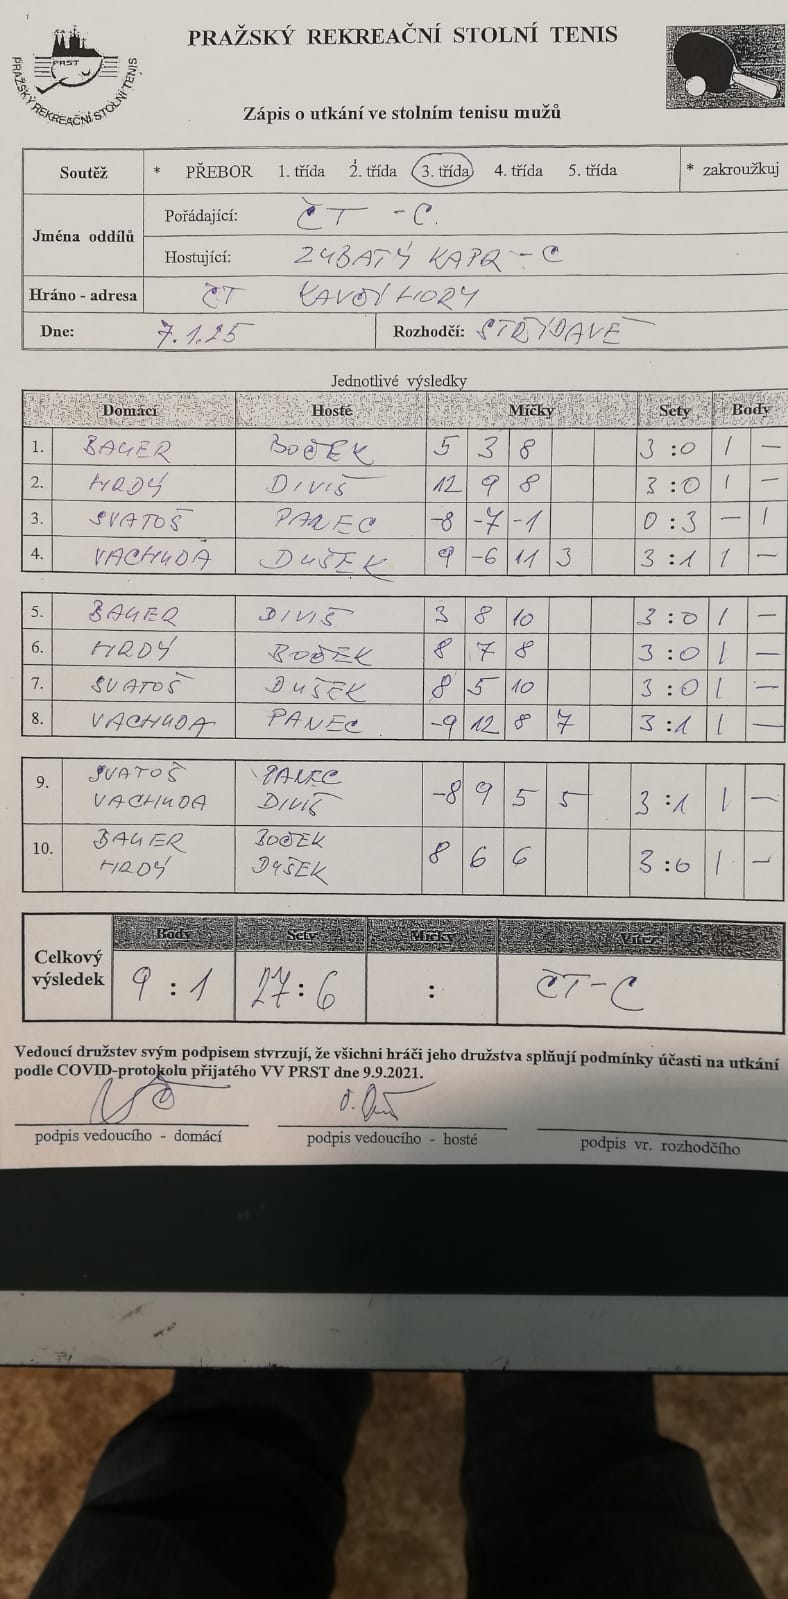 PRAŽSKÝ REKREAČNÍ STOLNÍ TENIS
PRST
PRAŽSKÝ REKREAČNÍ STOLNÍ TENIS
Zápis o utkání ve stolním tenisu mužů
Soutěž * PŘEBOR 1. třída 2. třída 3. třída 4. třída 5. třída * zakroužkuj
Jména oddílů
Pořádající: ČT - C.
Hostující: ZUBATÝ KAPR - C
Hráno - adresa ČT KAVČÍ HORY
Dne: 7.1.25 Rozhodčí: STŘÍDAVĚ
Jednotlivé výsledky
Domácí Hosté Míčky Sety Body
1. BAUER BOČEK 5 3 8 3 :0 1 —
2. HRDÝ DIVIŠ 12 9 8 3 :0 1 —
3. SVATOŠ PANEC -8 -7 -1 0 :3 — 1
4. VACHUDA DUŠEK 9 -6 11 3 3 :1 1 —
5. BAUER DIVIŠ 3 8 10 3 :0 1 —
6. HRDÝ BOČEK 8 7 8 3 :0 1 —
7. SVATOŠ DUŠEK 8 5 10 3 :0 1 —
8. VACHUDA PANEC -9 12 8 7 3 :1 1 —
9. SVATOŠ PANEC
VACHUDA DIVIŠ -8 9 5 5 3 :1 1 —
10. BAUER BOČEK
HRDÝ DUŠEK 8 6 6 3 :0 1 —
Body Sety Míčky Vítěz
Celkový výsledek 9 : 1 27 : 6 : ČT-C
Vedoucí družstev svým podpisem stvrzují, že všichni hráči jeho družstva splňují podmínky účasti na utkání
podle COVID-protokolu přijatého VV PRST dne 9.9.2021.
podpis vedoucího - domácí podpis vedoucího - hosté podpis vr. rozhodčího